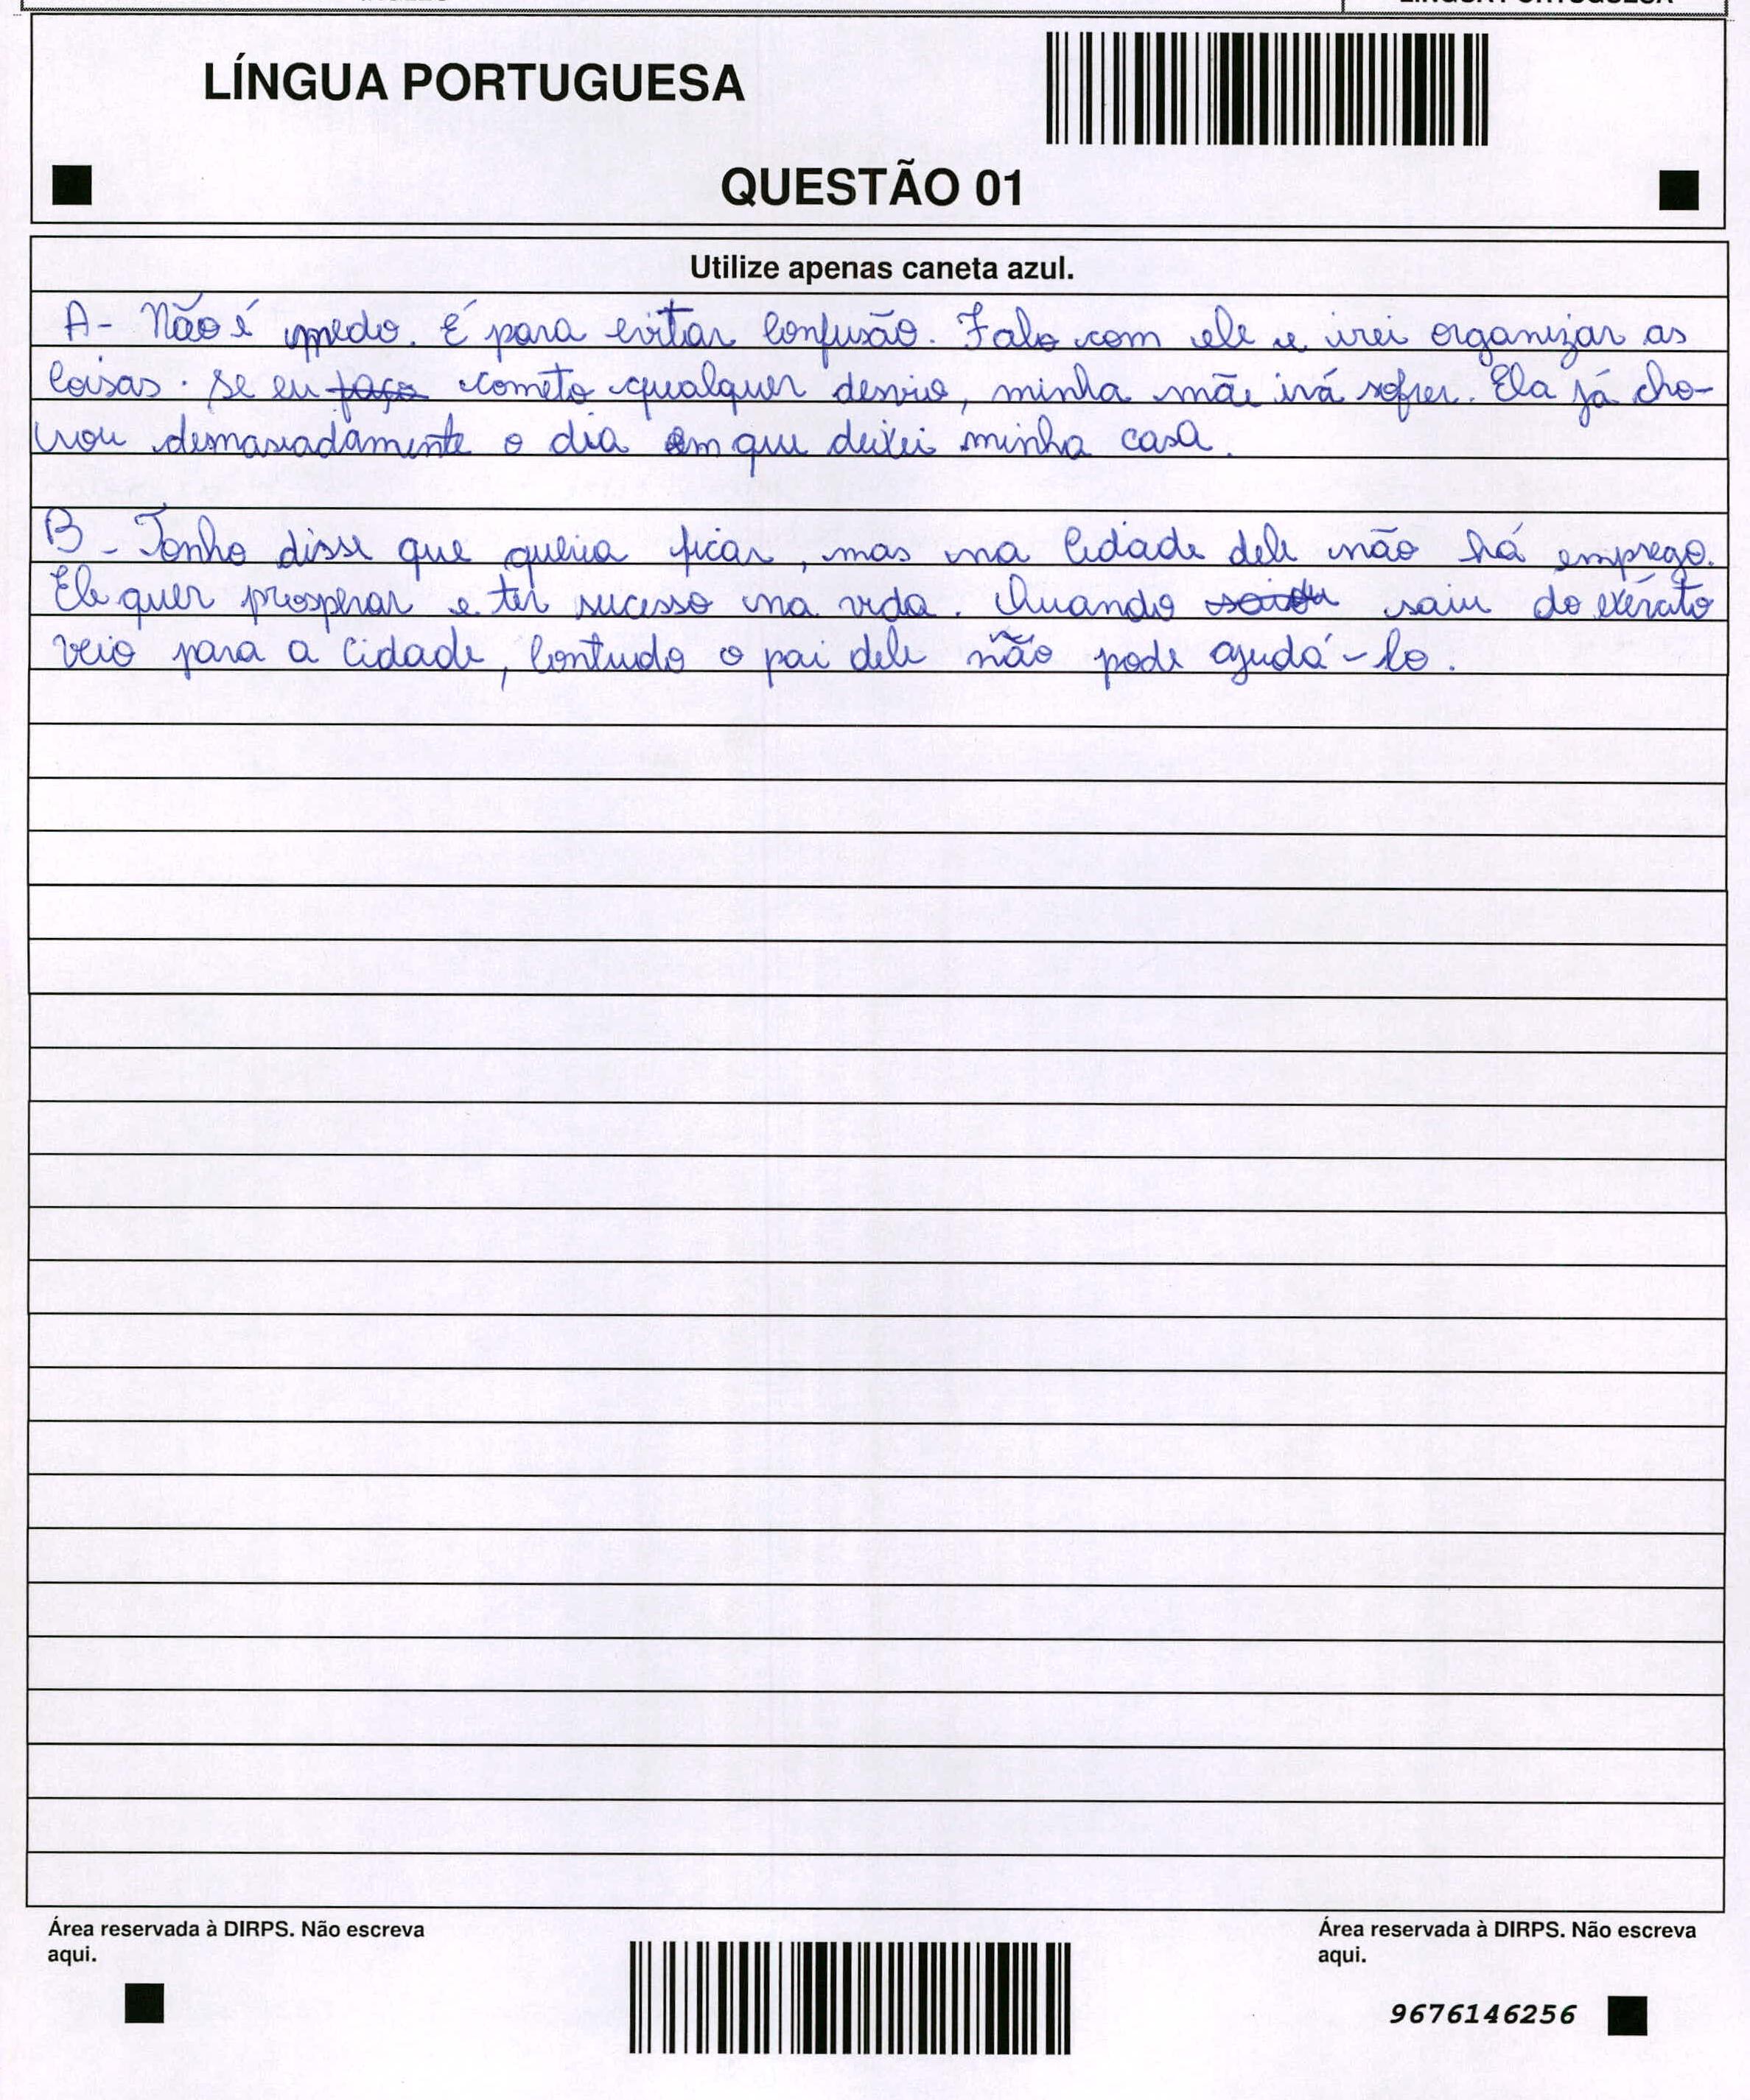 LÍNGUA PORTUGUESA
QUESTÃO 01
Utilize apenas caneta azul.
A- Não é medo. É para evitar confusão. Falo com ele e irei organizar as
coisas. Se eu faço cometo qualquer desvio, minha mãe irá sofrer. Ela já cho-
rou demasiadamente o dia em que deixei minha casa.
B- Tonho disse que queria ficar, mas na cidade dele não há emprego.
Ele quer prosperar e ter sucesso na vida. Quando saiu do exército
veio para a cidade, contudo o pai dele não pode ajudá-lo.
Área reservada à DIRPS. Não escreva
aqui.
Área reservada à DIRPS. Não escreva
aqui.
9676146256